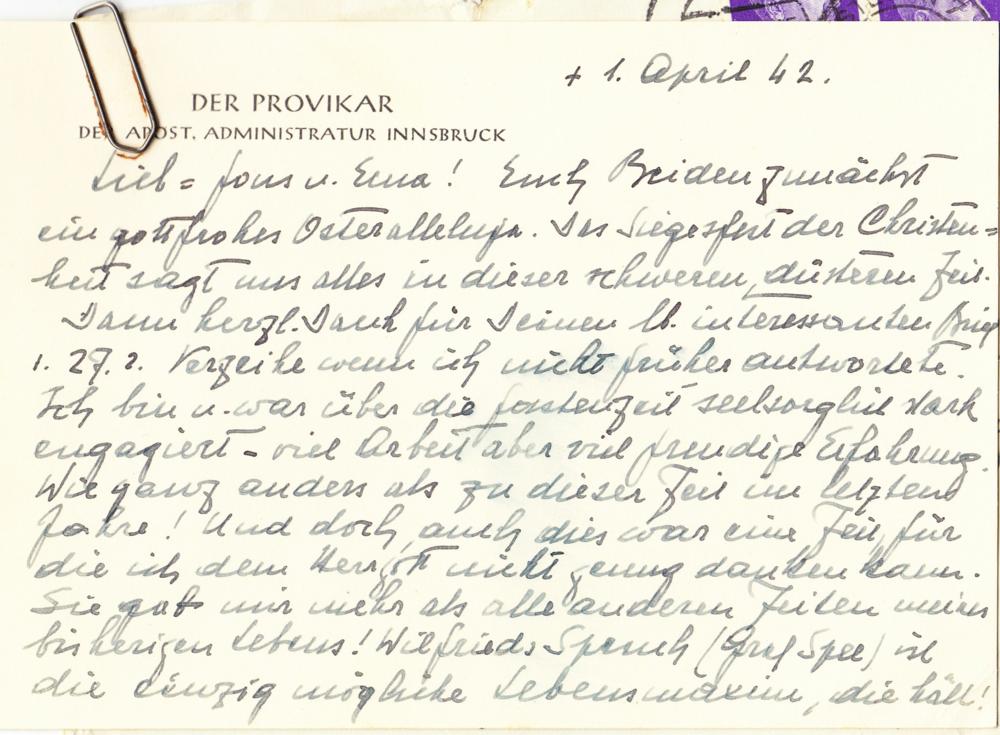 + 1. April 42.
DER PROVIKAR
DER APOST. ADMINISTRATUR INNSBRUCK
Lieb = Fons u. Erna! Euch Beiden zunächst
ein gottfrohes Osteralleluja. Das Siegesfest der Christen=
heit sagt uns alles in dieser schweren, düsteren Zeit.
Dann herzl. Dank für Deinen lb. interessanten Brief
27. 2. Verzeihe wenn ich nicht früher antwortete.
Ich bin u. war über die Fastenzeit seelsorglich stark
engagiert - viel Arbeit aber viel freudige Erfahrung.
Wie ganz anders als zu dieser Zeit im letzten
Jahre! Und doch, auch dies war eine Zeit, für
die ich dem Herrgott nicht genug danken kann.
Sie gab mir mehr als alle anderen Zeiten meines
bisherigen Lebens! Wilfrieds Spruch (Graf Spee) ist
die einzig mögliche Lebensmaxime, die hält!